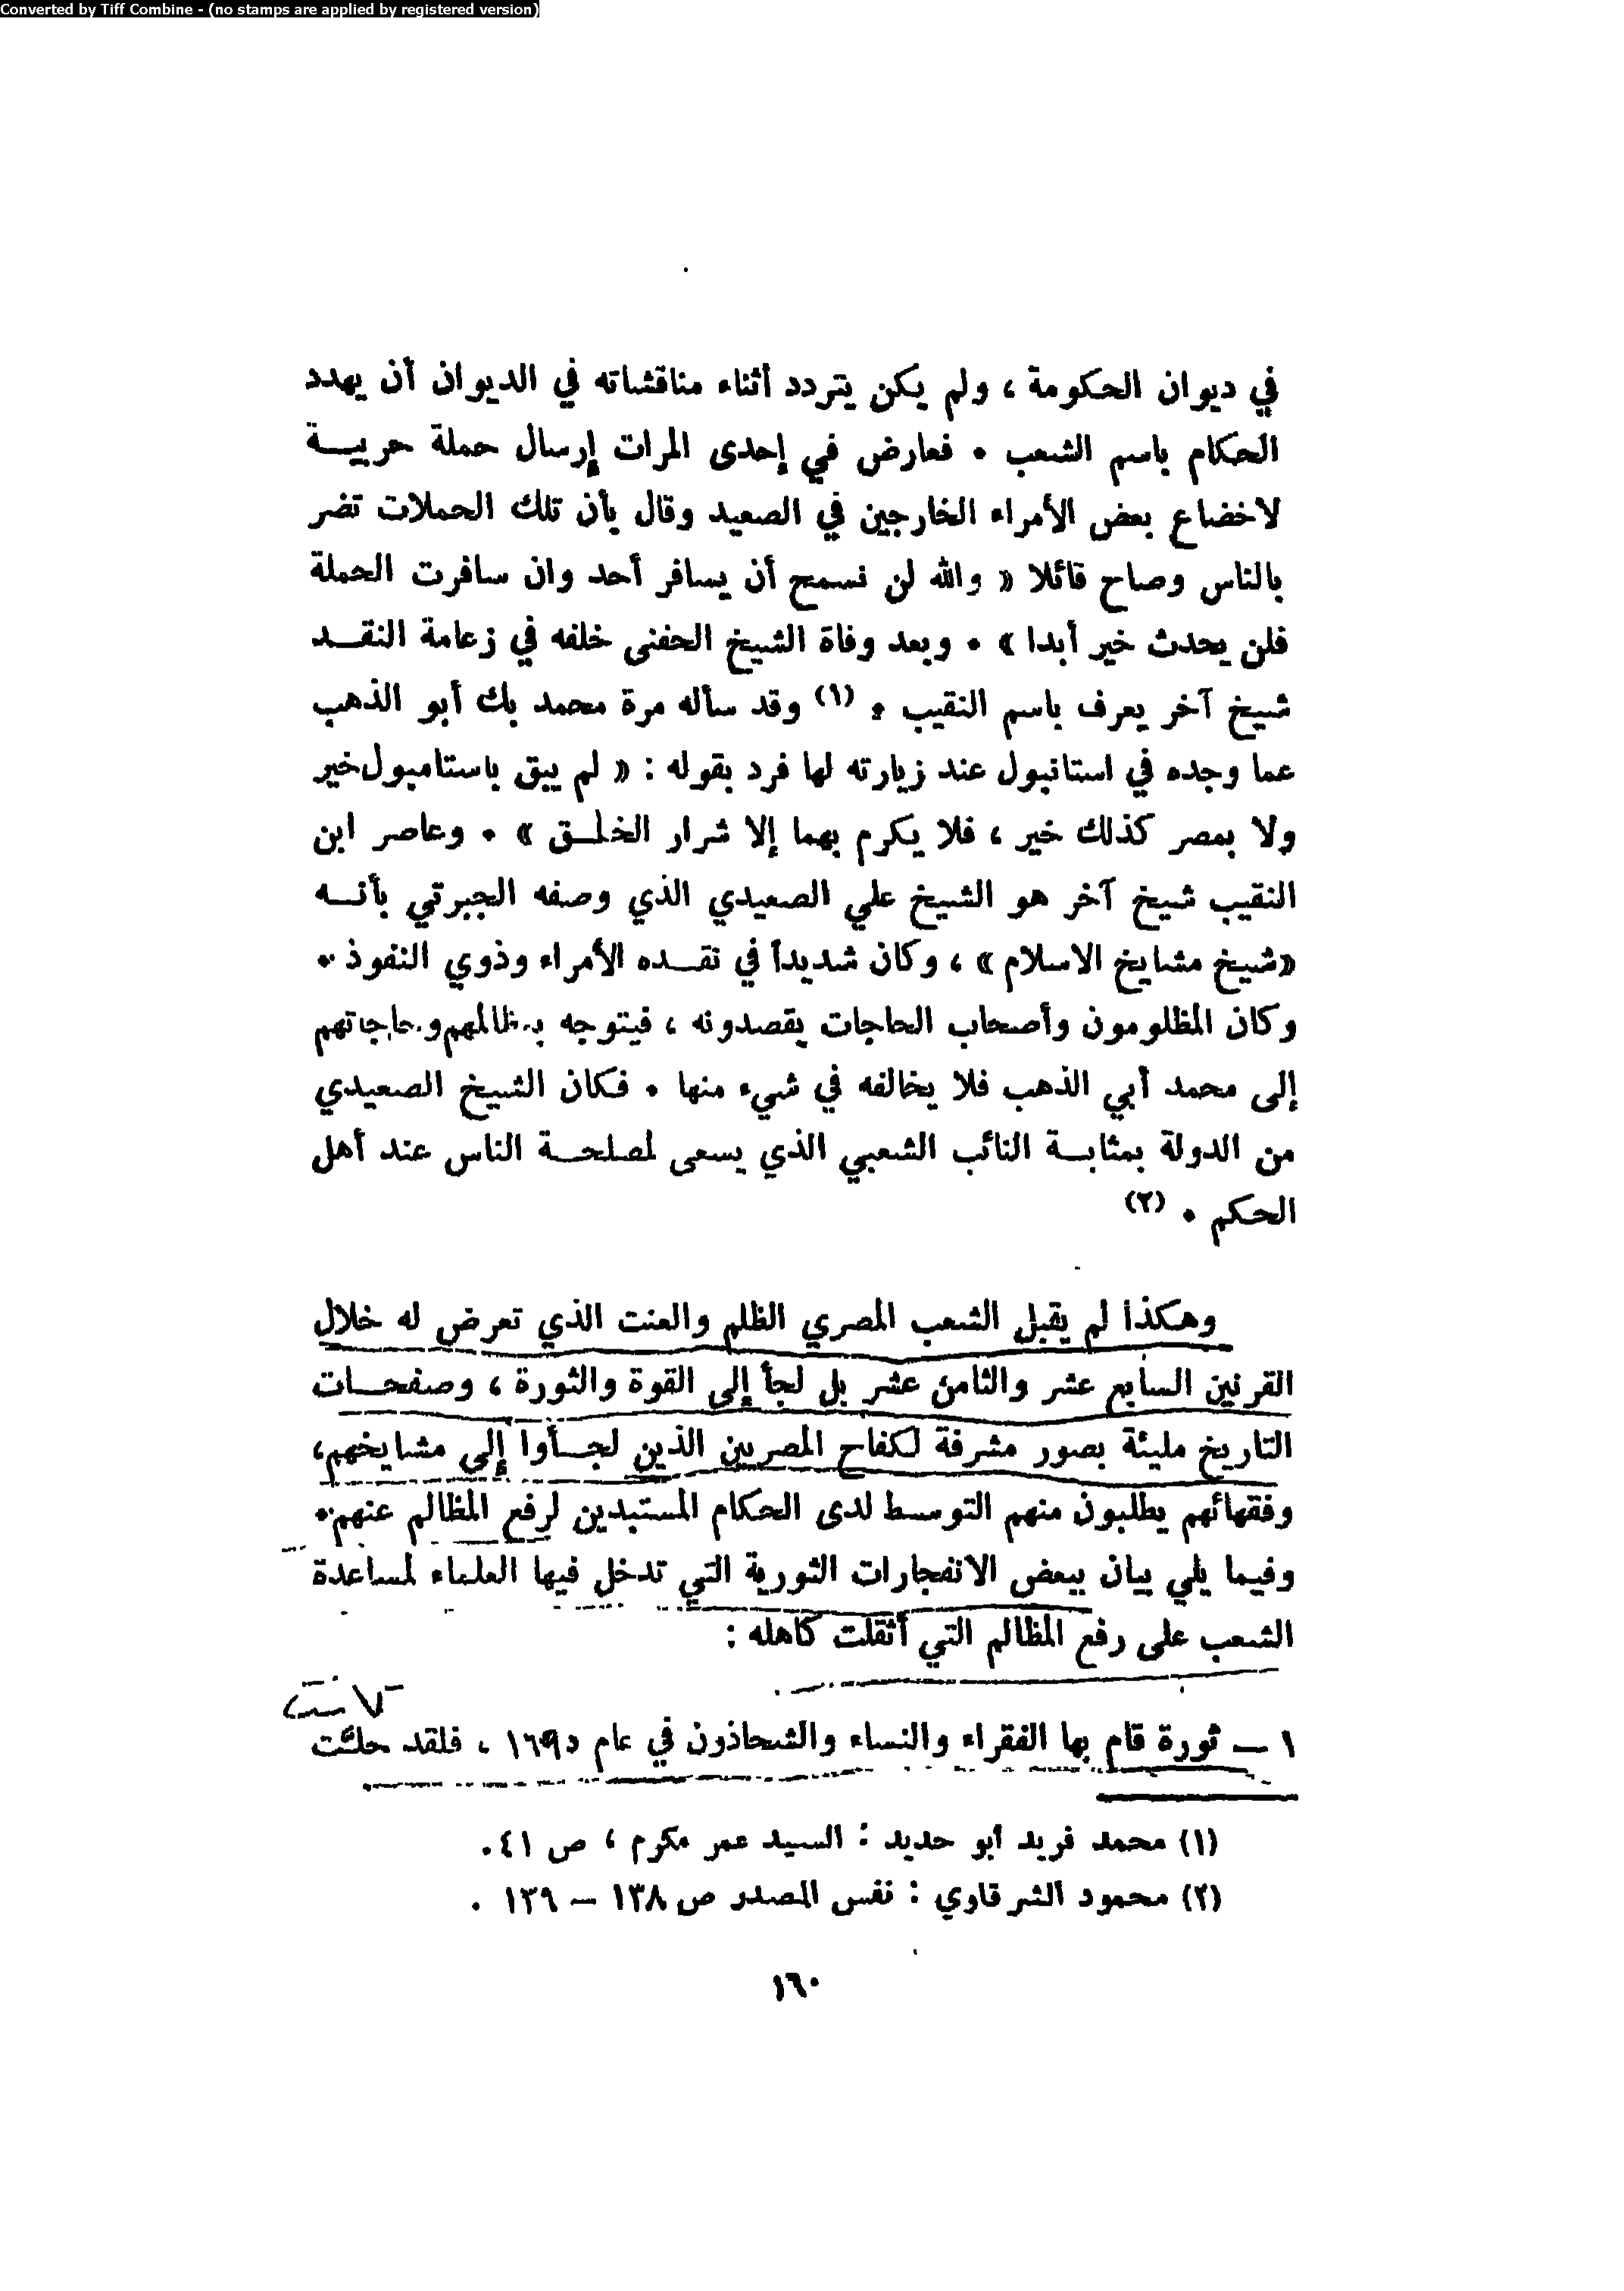 Converted by Tiff Combine - (no stamps are applied by registered version)
في ديوان الحكومة ، ولم يكن يتردد أثناء مناقشاته في الديوان أن يهدد
الحكام باسم الشعب . فعارض في إحدى المرات إرسال حملة حربيــة
لاخضاع بعض الأمراء الخارجين في الصعيد وقال بأن تلك الحملات تضر
بالناس وصاح قائلا « والله لن نسمح أن يسافر أحد وان سافرت الحملة
فلن يحدث خير أبدا » . وبعد وفاة الشيخ الحفنى خلفه في زعامة النقــد
شيخ آخر يعرف باسم النقيب . (١) وقد سأله مرة محمد بك أبو الذهب
عما وجده في استانبول عند زيارته لها فرد بقوله : « لم يبق باستامبول خير
ولا بمصر كذلك خير ، فلا يكرم بهما إلا شرار الخلــق » . وعاصر ابن
النقيب شيخ آخر هو الشيخ علي الصعيدي الذي وصفه الجبرتي بأنــه
«شيخ مشايخ الاسلام» ، وكان شديداً في نقــده الأمراء وذوي النفوذ .
وكان المظلومون وأصحاب الحاجات يقصدونه ، فيتوجه بمظالمهم وحاجاتهم
إلى محمد أبي الذهب فلا يخالفه في شيء منها . فكان الشيخ الصعيدي
من الدولة بمثابــة النائب الشعبي الذي يسعى لمصلحــة الناس عند أهل
الحكم . (٢)
وهكذا لم يقبل الشعب المصري الظلم والعنت الذي تعرض له خلال
القرنين السابع عشر والثامن عشر بل لجأ إلى القوة والثورة ، وصفحــات
التاريخ مليئة بصور مشرفة لكفاح المصريين الذين لجــأوا إلى مشايخهم،
وفقهائهم يطلبون منهم التوسط لدى الحكام المستبدين لرفع المظالم عنهم.
وفيما يلي بيان ببعض الانفجارات الثورية التي تدخل فيها العلماء لمساعدة
الشعب على رفع المظالم التي أثقلت كاهله :
١ ــ ثورة قام بها الفقراء والنساء والشحاذون في عام ١٦٩٥ ، فلقد حلت
(١) محمد فريد أبو حديد : السيد عمر مكرم ، ص ٤١.
(٢) محمود الشرقاوي : نفس المصدر ص ١٣٨ – ١٣٩ .
١٦٠